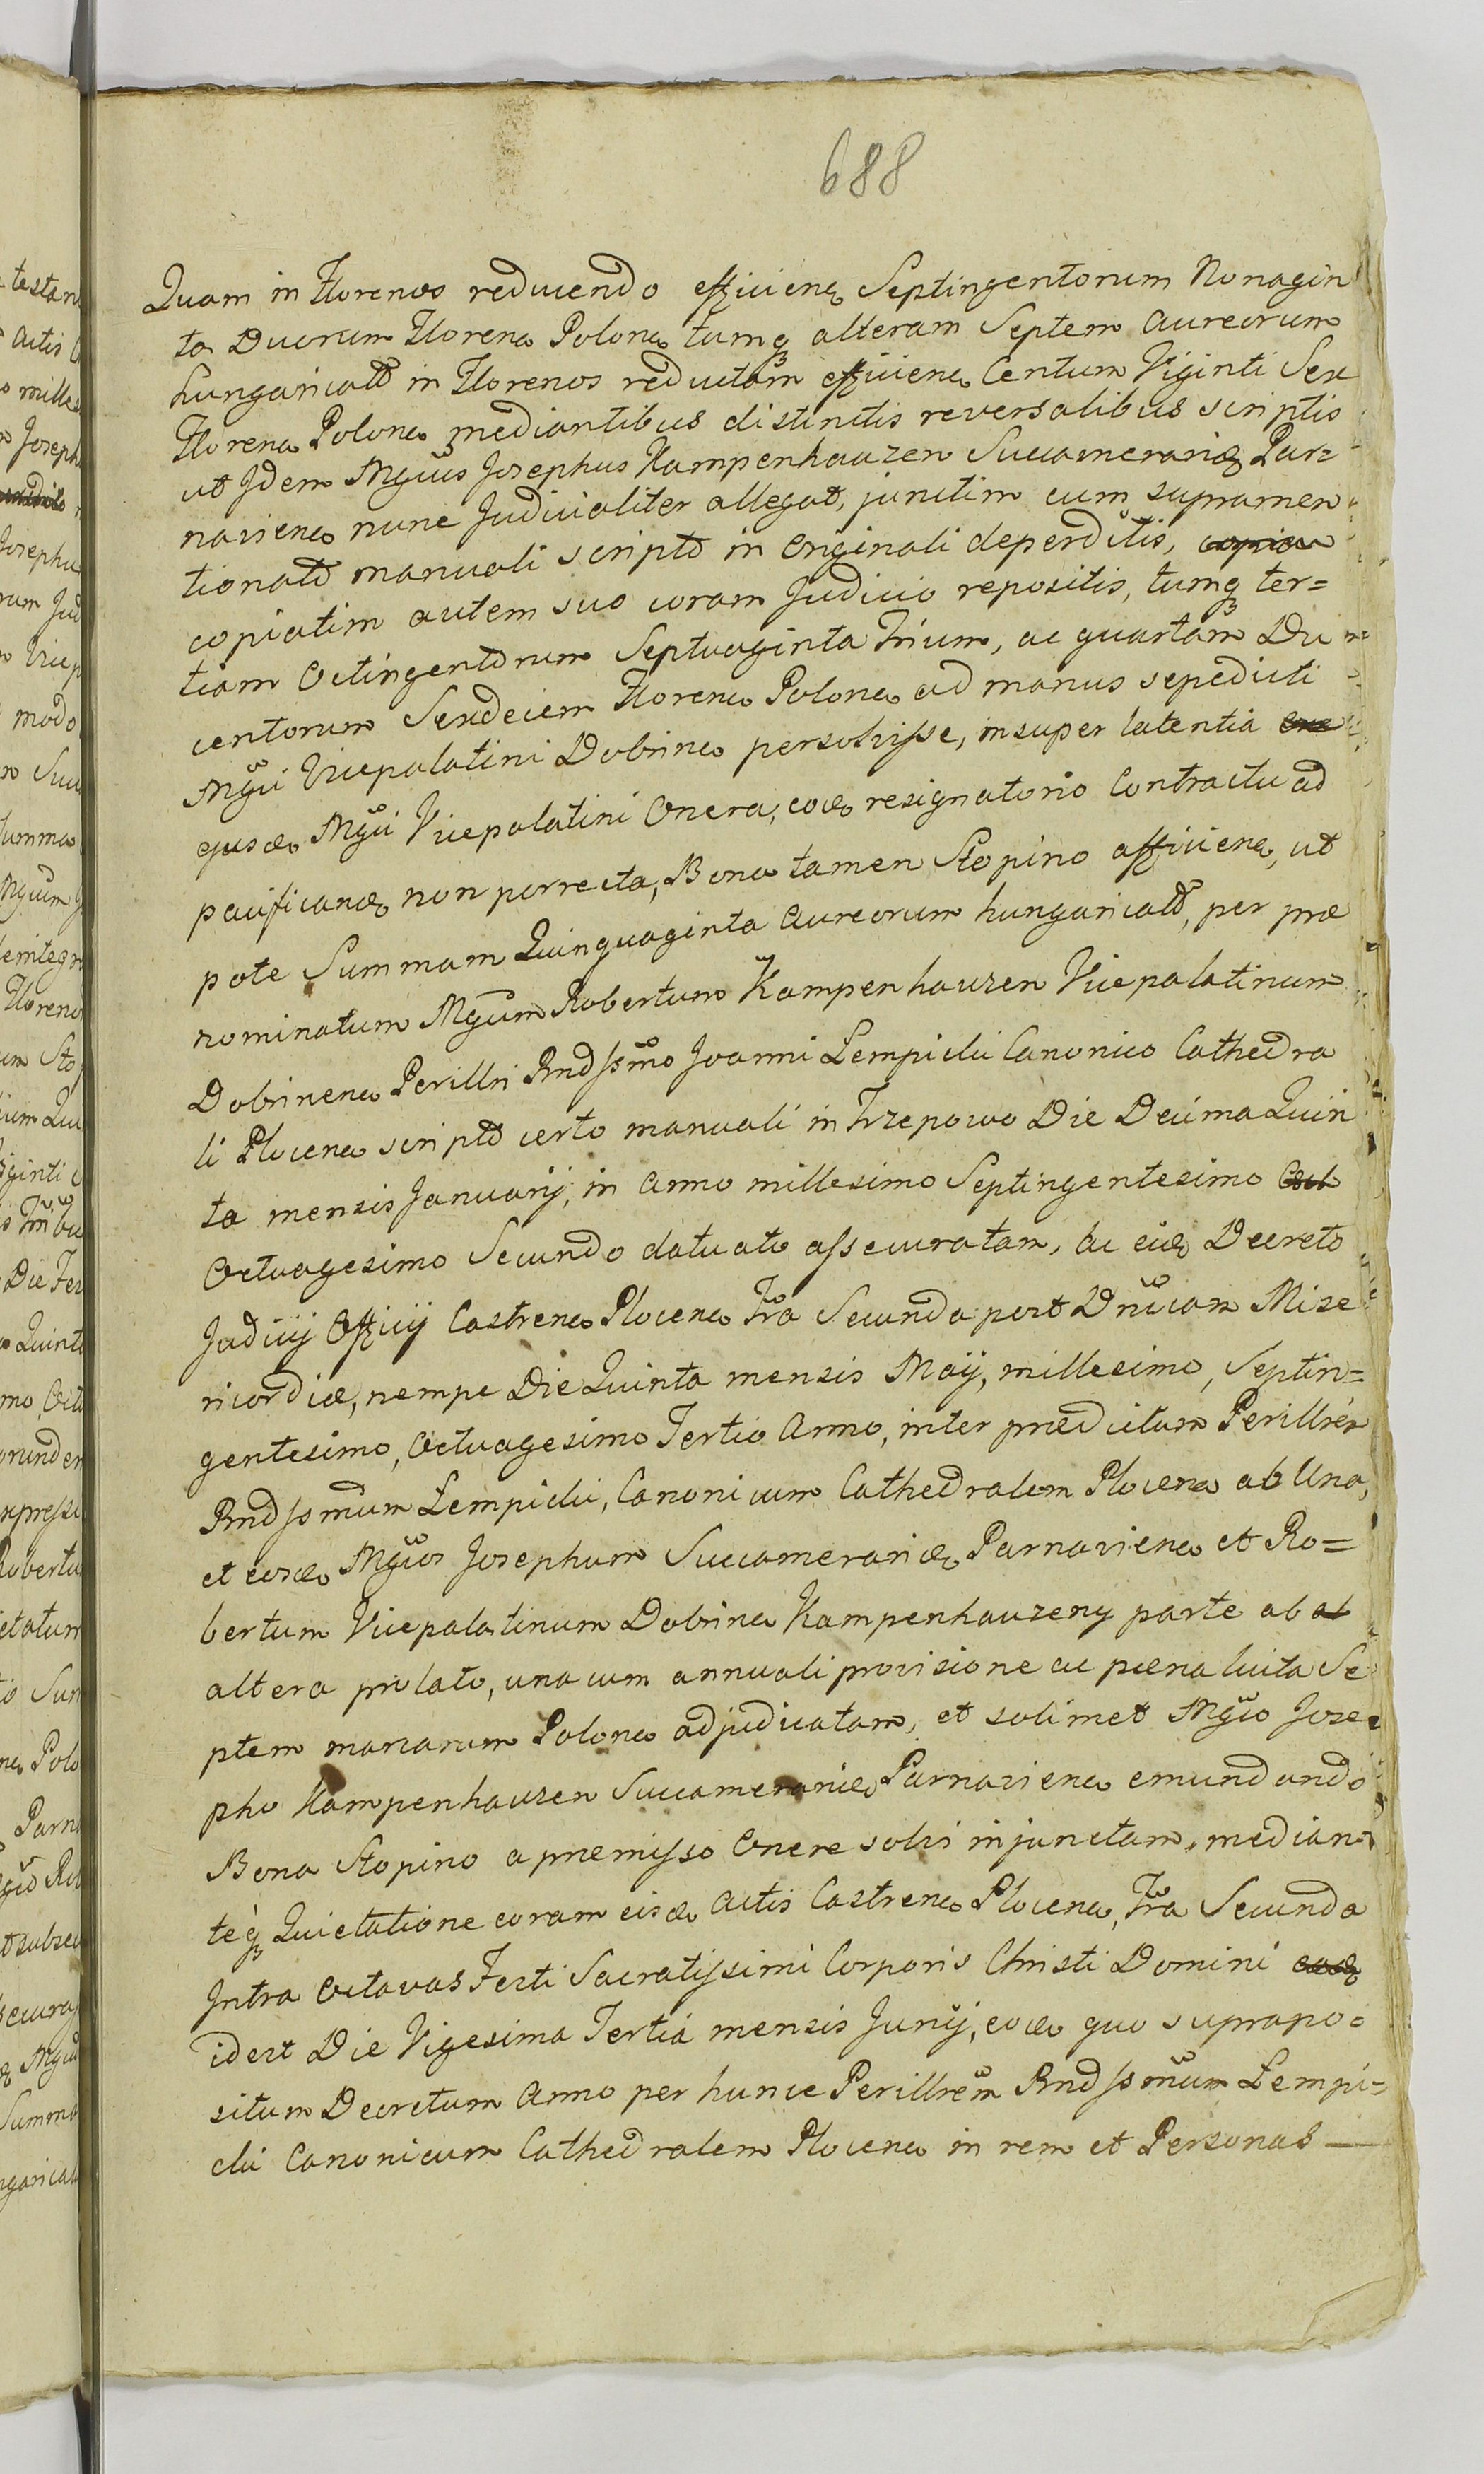 688
Quam in Florenos reducendo efficiens Septingentorum Nonagin
ta Duorum Floren Polon tumq alteram Septem Aureorum
hungaricald in Florenos reductam efficien Centum Viginti Sex
Floren Polon mediantibus distinctis reversalibus scriptis
ut Idem Mgcus Josephus Kampenhauzen Succamerarius Par=
navien nunc Judicialiter allegat, junctim cum supramen
tionato manuali scripto in Originali deperditis, copia
copiatim autem suo coram Judicio repositis, tumq ter=
tiam Octingentorum Septuaginta Trium, ac quartam Du
centorum Sexdecim Floren Polon ad manus sepedicti
Mgci Vicepalatini Dobrinen persolvisse, insuper latentia
ejusd Mgci Vicepalatini Onera, eod resignatorio Contractu ad
pacificand non porrecta, Bona tamen Stopino afficien, ut
pote Summam Quinquaginta Aureorum hungaricald, per præ
nominatum Mgcum Robertum Kampenhauzen Vicepalatinum
Dobrinen Perillri Rndssmo Joanni Lempicki Canonico Cathedra
li Plocen scripto certo manuali in Trzepowo Die Decima Quin
ta mensis Januarij, in Anno millesimo Septingentesimo
Octuagesimo Secundo datuato assecuratam, ac eid Decreto
Judicij Officij Castren Plocen Fra Secunda post Dnicam Mise
ricordiæ, nempe Die Quinta mensis Maij, millesimo, Septin=
gentesimo, Octuagesimo Tertio Anno, inter prædictum Perillrem
Rndssmum Lempicki, Canonicum Cathedralem Plocen ab Una,
et eosd Mgcos Josephum Succamerarium Parnavien et Ro=
bertum Vicepalatinum Dobrinen Kampenhauzeny parte ab ab
altera prolato, una cum annuali provisione ac pæna luita Se
ptem marcarum Polon adjudicatam, et solimet Mgco Jose
pho Kampenhauzen Succamerario Parnavien emundando
Bona Stopino a præmisso Onere solvi injunctam, median
teq Quietatione coram eisd Actis Castren Plocen, Fra Secunda
Intra Octavas Festi Sacratissimi Corporis Christi Domini eod
idest Die Vigesima Tertia mensis Junij, eod quo suprapo=
situm Decretum Anno per hunce Perillrem Rndssmum Lempi=
cki Canonicum Cathedralem Plocen in rem et Personas —